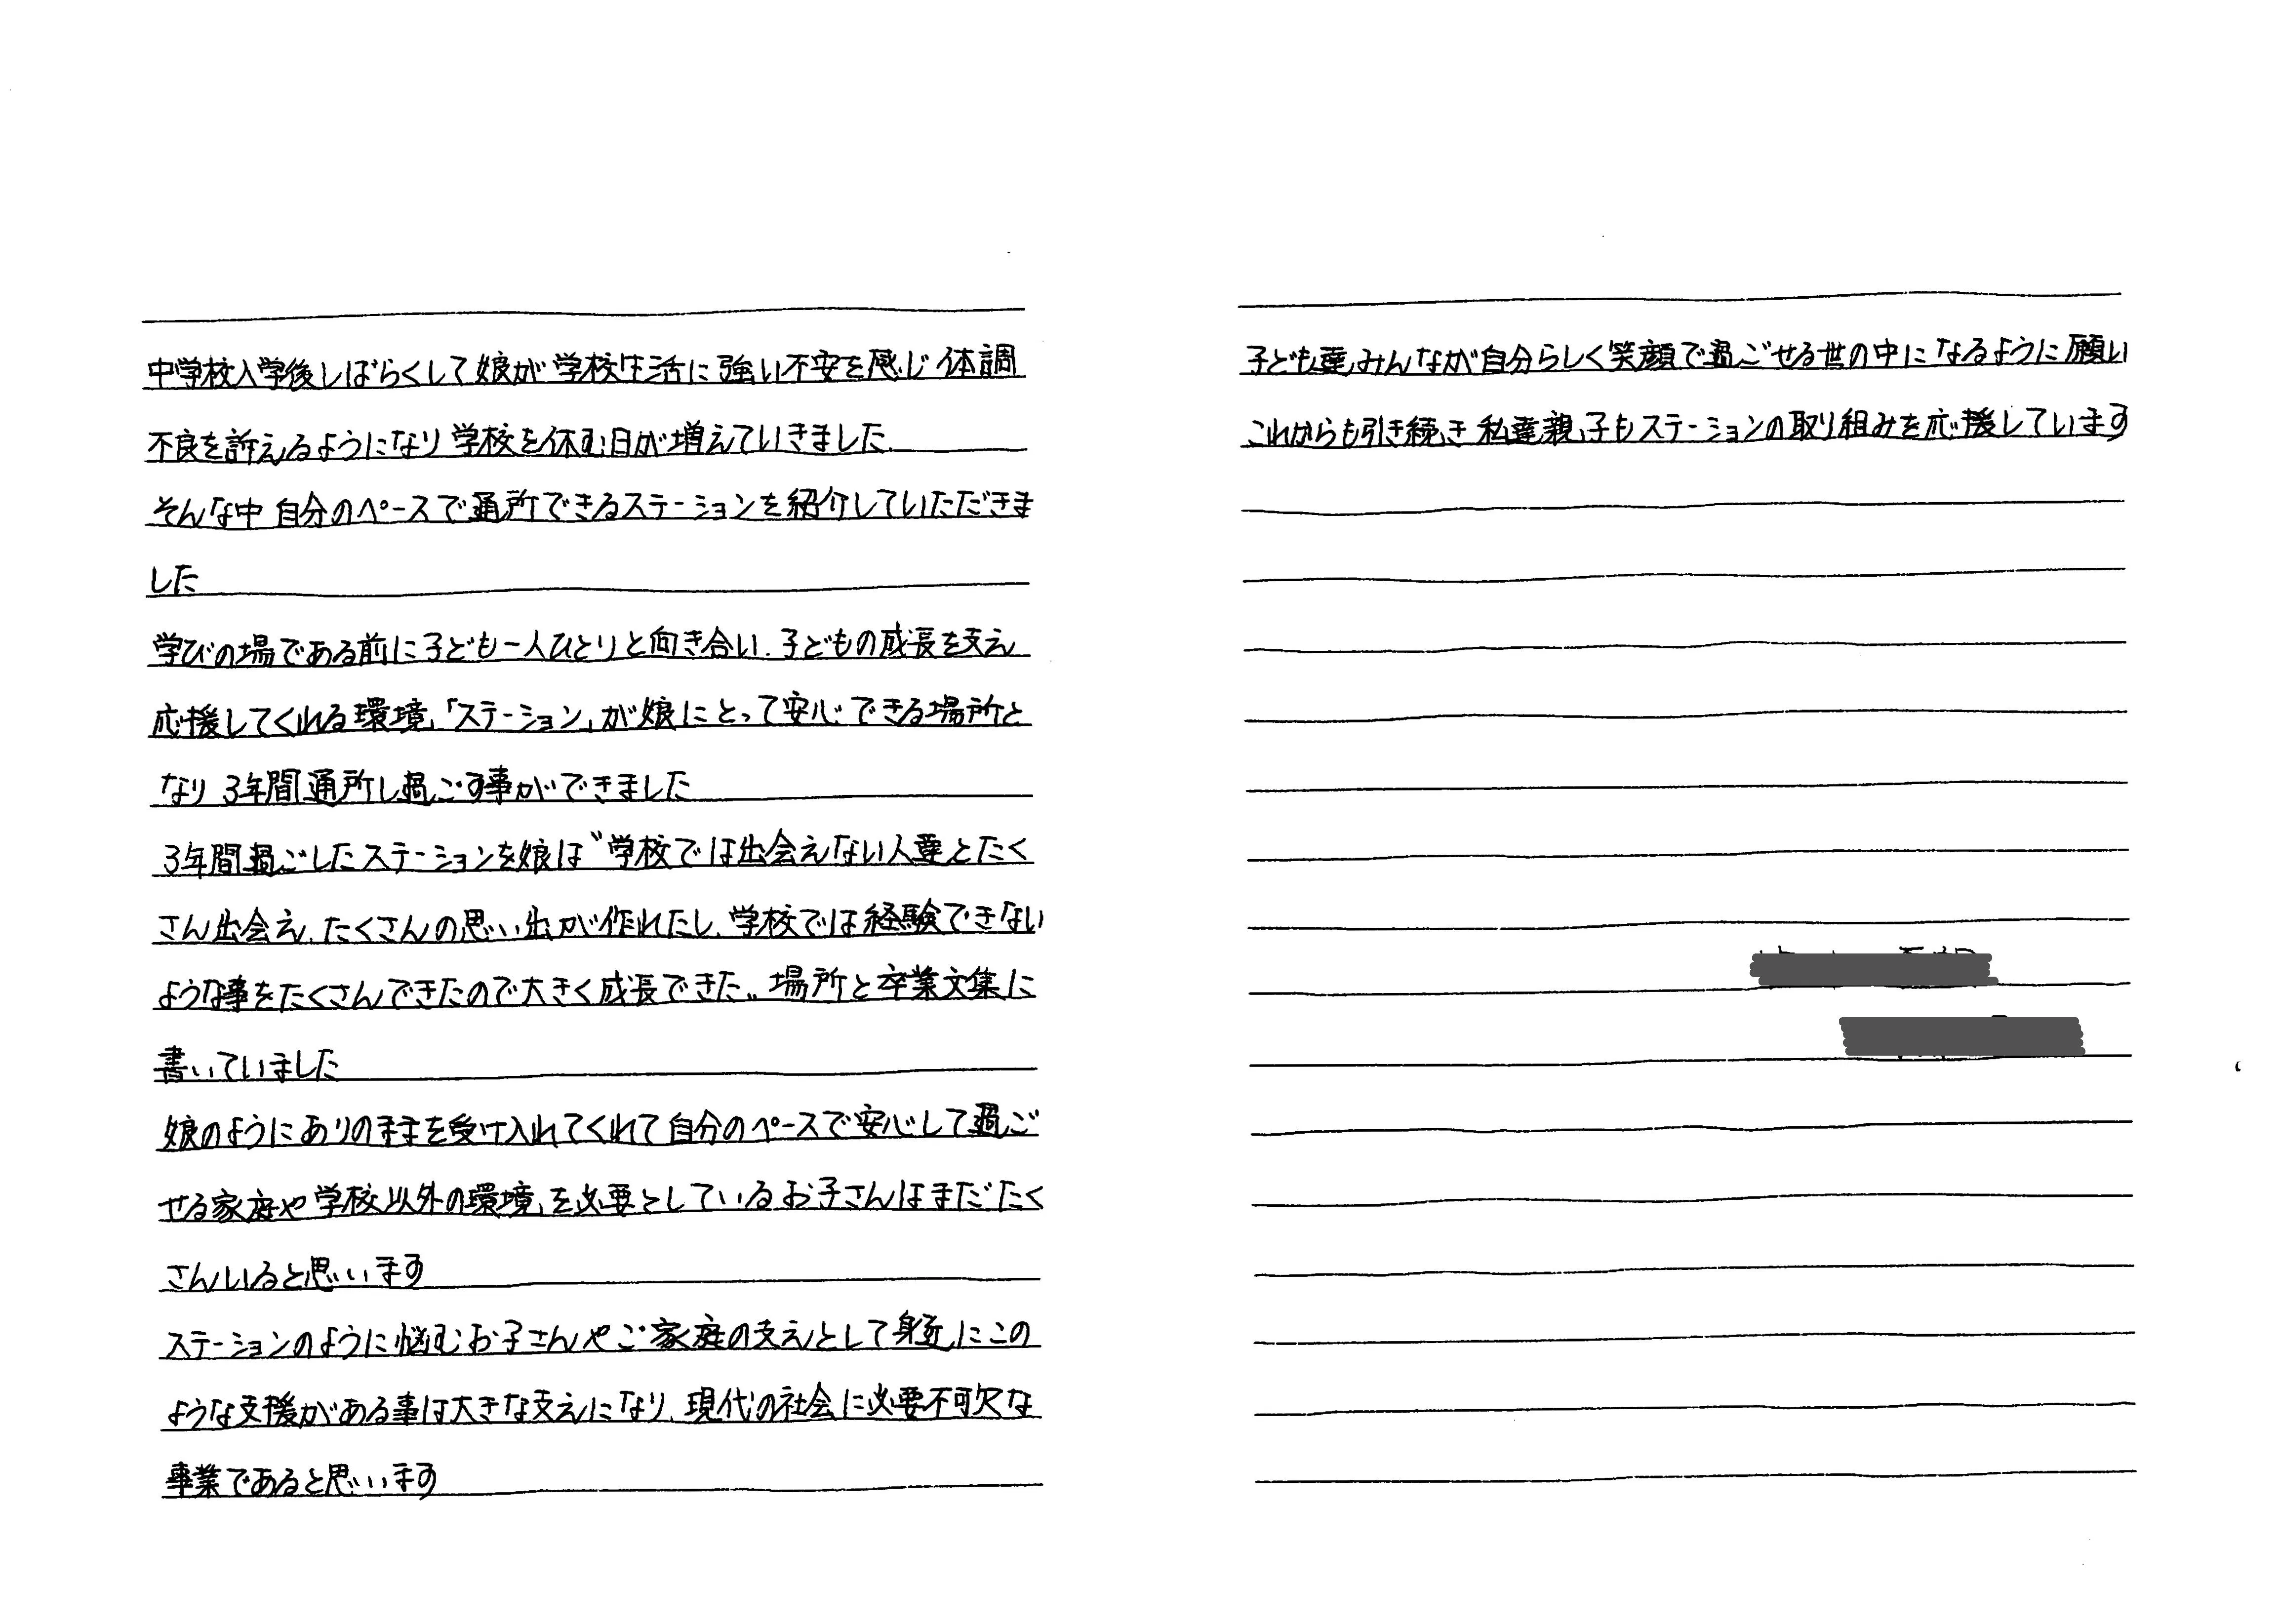 中学校入学後しばらくして娘が学校生活に強い不安を感じ体調
不良を訴えるようになり学校を休む日が増えていきました.
そんな中 自分のペースで通所できるステーションを紹介していただきま
した
学びの場である前に子ども一人ひとりと向き合い、子どもの成長を支え
応援してくれる環境、「ステーション」が娘にとって安心できる場所と
なり 3年間通所し過ごす事ができました
3年間過ごしたステーションを娘は〝学校では出会えない人達とたく
さん出会え、たくさんの思い出が作れたし、学校では経験できない
ような事をたくさんできたので大きく成長できた〟場所と卒業文集に
書いていました
娘のようにありのままを受け入れてくれて自分のペースで安心して過ご
せる家庭や学校以外の環境を必要としているお子さんはまだたく
さんいると思います
ステーションのように悩むお子さんやご家庭の支えとして身近にこの
ような支援がある事は大きな支えになり、現代の社会に必要不可欠な
事業であると思います
子ども達みんなが自分らしく笑顔で過ごせる世の中になるように願い
これからも引き続き私達親子もステーションの取り組みを応援しています